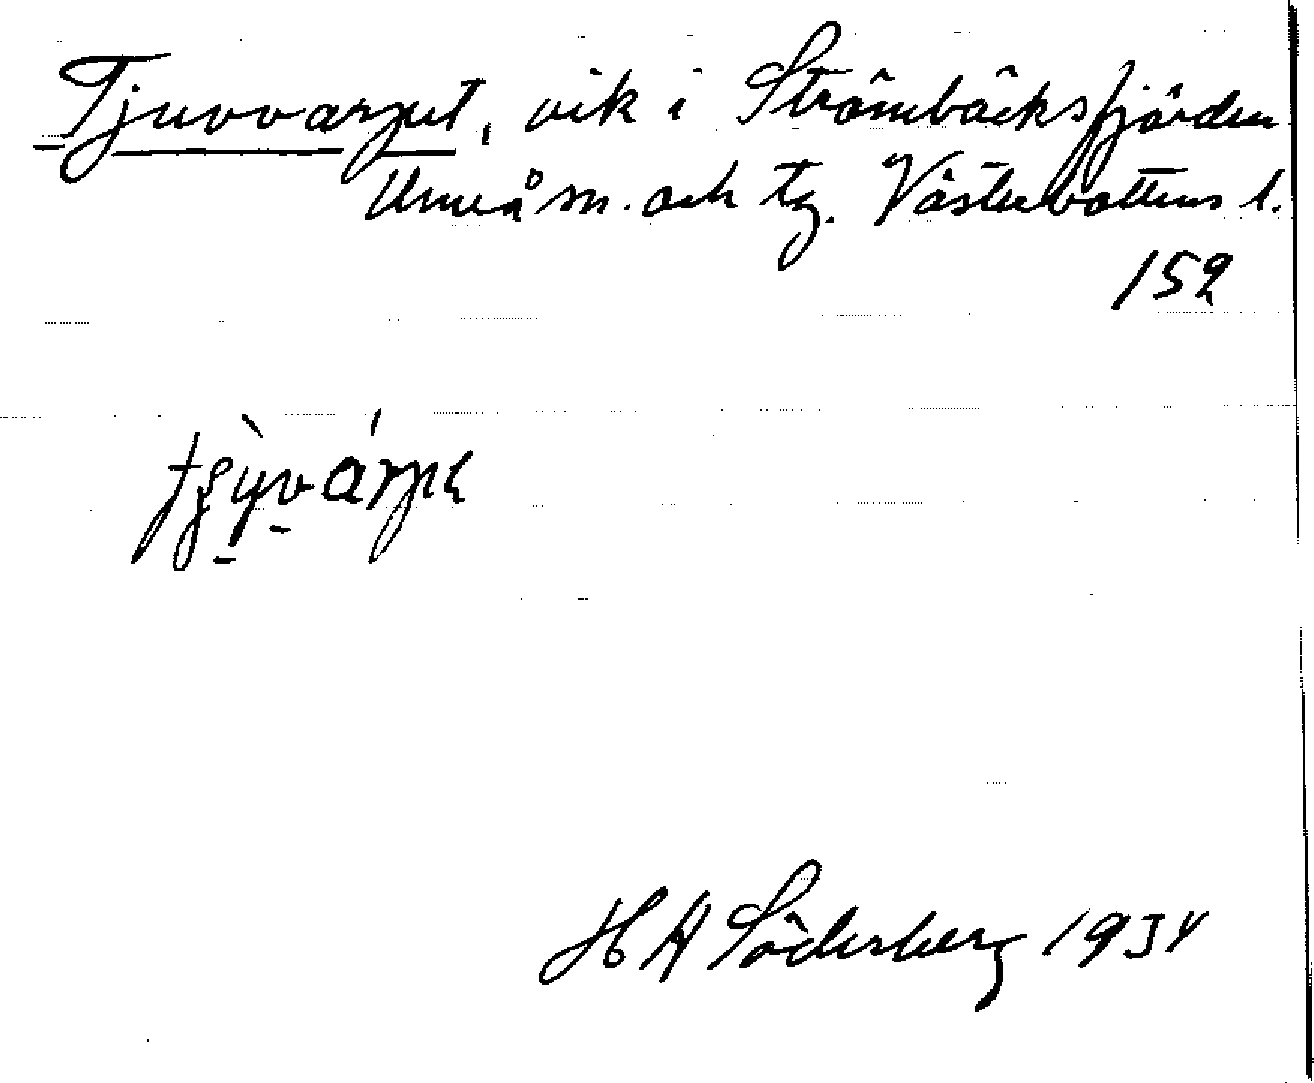 Tjuvvarpet, vik i Strömbäcksfjärden
Umeå sn. och tg. Västerbottens l.
152
H A Söderberg 1934